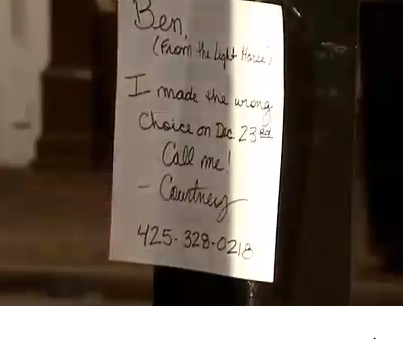 Ben,
(From the Light Horse's
I made the wrong
Choice on Dec. 23rd
Call me!
- Courtney
425-328-0218